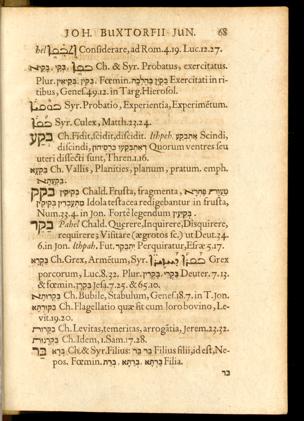 JOH. BUXTORFII JUN. 68
Considerare, ad Rom.4.19. Luc.12.27.
Ch. & Syr. Probatus, exercitatus.
Plur. בקיאין, בקיין. Fœmin. Exercitati in ri-
tibus, Genes.49.12. in Targ.Hierosol.
Syr. Probatio, Experientia, Experimētum.
Syr. Culex, Matth.23.24.
בקע Ch. Fidit, scidit, discidit. Ithpeh. אתבקע Scindi,
discindi, Quorum ventres seu
uteri dissecti sunt, Thren.1.16.
Ch. Vallis, Planities, planum, pratum. emph.
בקק Chald. Frusta, fragmenta,
Idola testacea redigebantur in frusta,
Num.33.4. in Jon. Fortè legendum
בקר Pahel Chald. Quærere, Inquirere, Disquirere,
requirere; Visitare (ægrotos sc.) ut Deut.34.
6. in Jon. Ithpah. Fut. יתבקר Perquiratur, Esræ 5.17.
Ch. Grex, Armētum, Syr. Grex
porcorum, Luc.8.32. Plur. Deuter.7.13.
& fœmin. Jesa.7.25. & 65.10.
Ch. Bubile, Stabulum, Genes.18.7. in T. Jon.
Ch. Flagellatio quæ sit cum loro bovino, Le-
vit.19.20.
Ch. Levitas, temeritas, arrogātia, Jerem.23.32.
Ch. Idem, 1.Sam.17.28.
בר ברא Ch. & Syr. Filius: בר בר Filius filii, id est, Ne-
pos. Fœmin. Filia.
בר